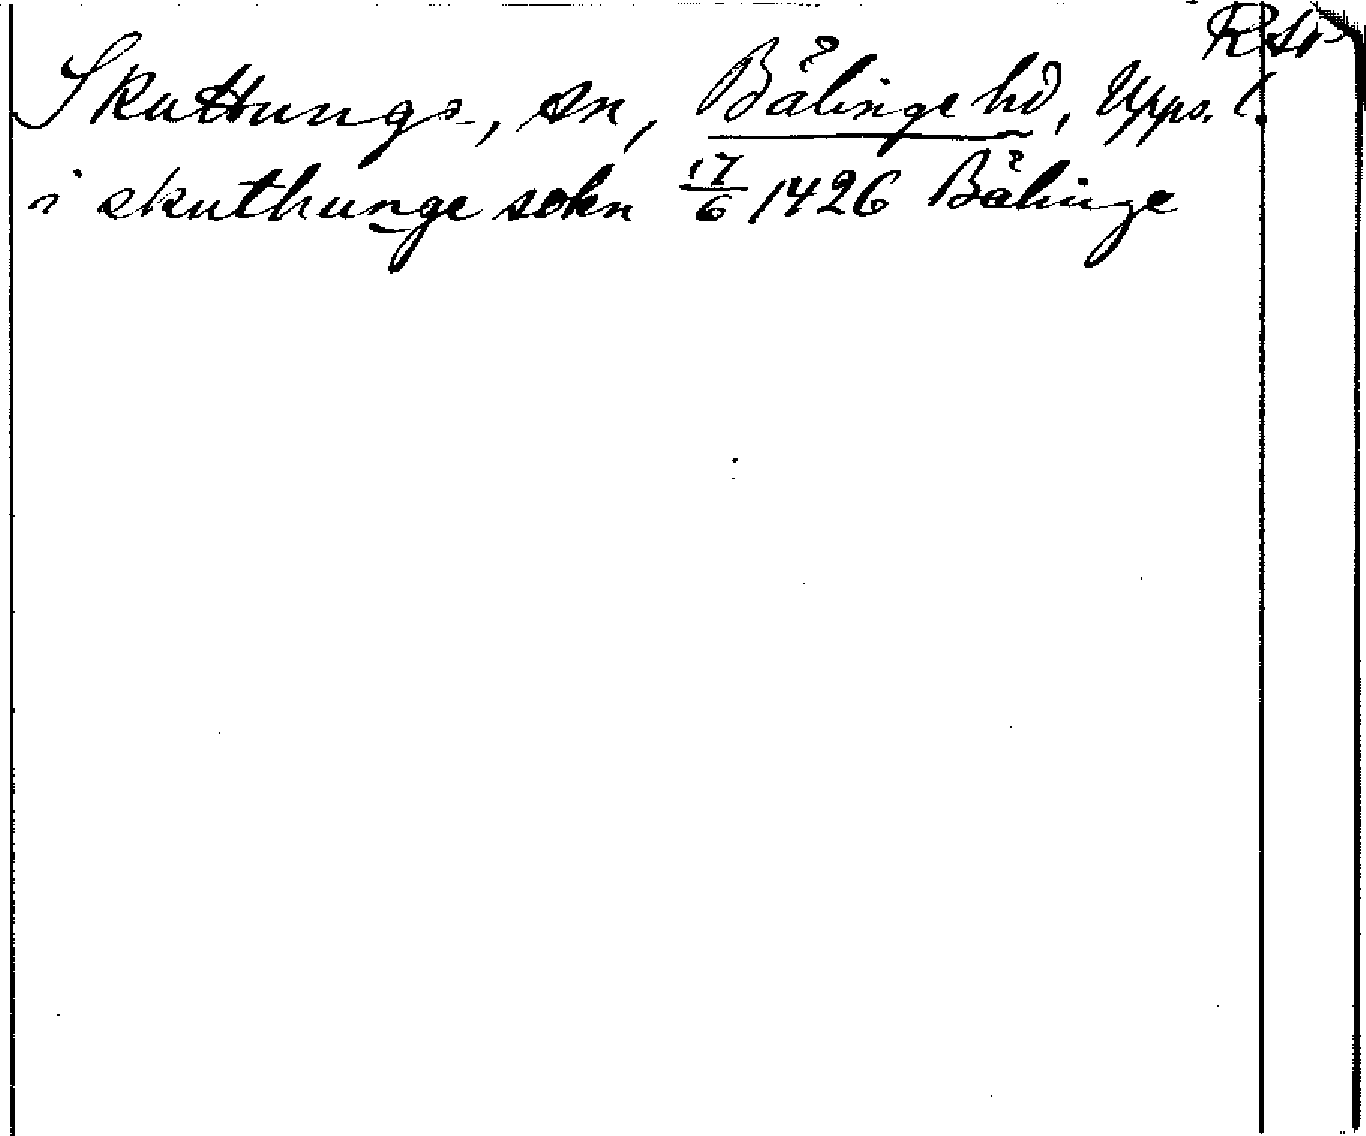 RSv
Skuttungs, sn, Bälinge hd, Upps. l.
i skuthunge sokn 17/6 1426 Bälinge